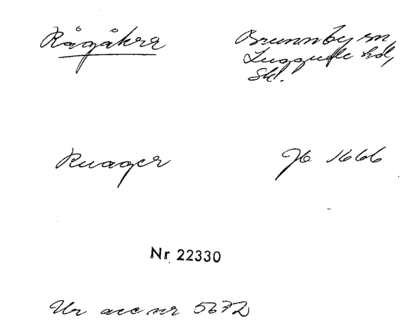 Rågåkra
Brunnby sn,
Luggude hd,
Sk.
Ruager
Jb 1666
Nr 22330
Ur acc nr 5672